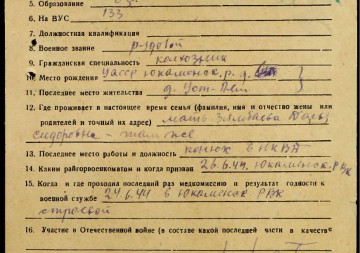 5. Образование
6. На ВУС 133
7. Должностная квалификация
8. Военное звание рядовой
9. Гражданская специальность колхозник
10. Место рождения УАССР Юкаменск. р. д.
11. Последнее место жительства д.
12. Где проживает в настоящее время семья (фамилия, имя и отчество жены или
родителей и точный их адрес) мать
Сидоровна - там же
13. Последнее место работы и должность конюх
14. Каким райгорвоенкоматом и когда призван 26.6.44 Юкаменск. РВК
15. Когда и где проходил последний раз медкомиссию и результат годности к
военной службе 24.6.44 в Юкаменск РВК
строевой
16. Участие в Отечественной войне (в составе какой последней части в качестве